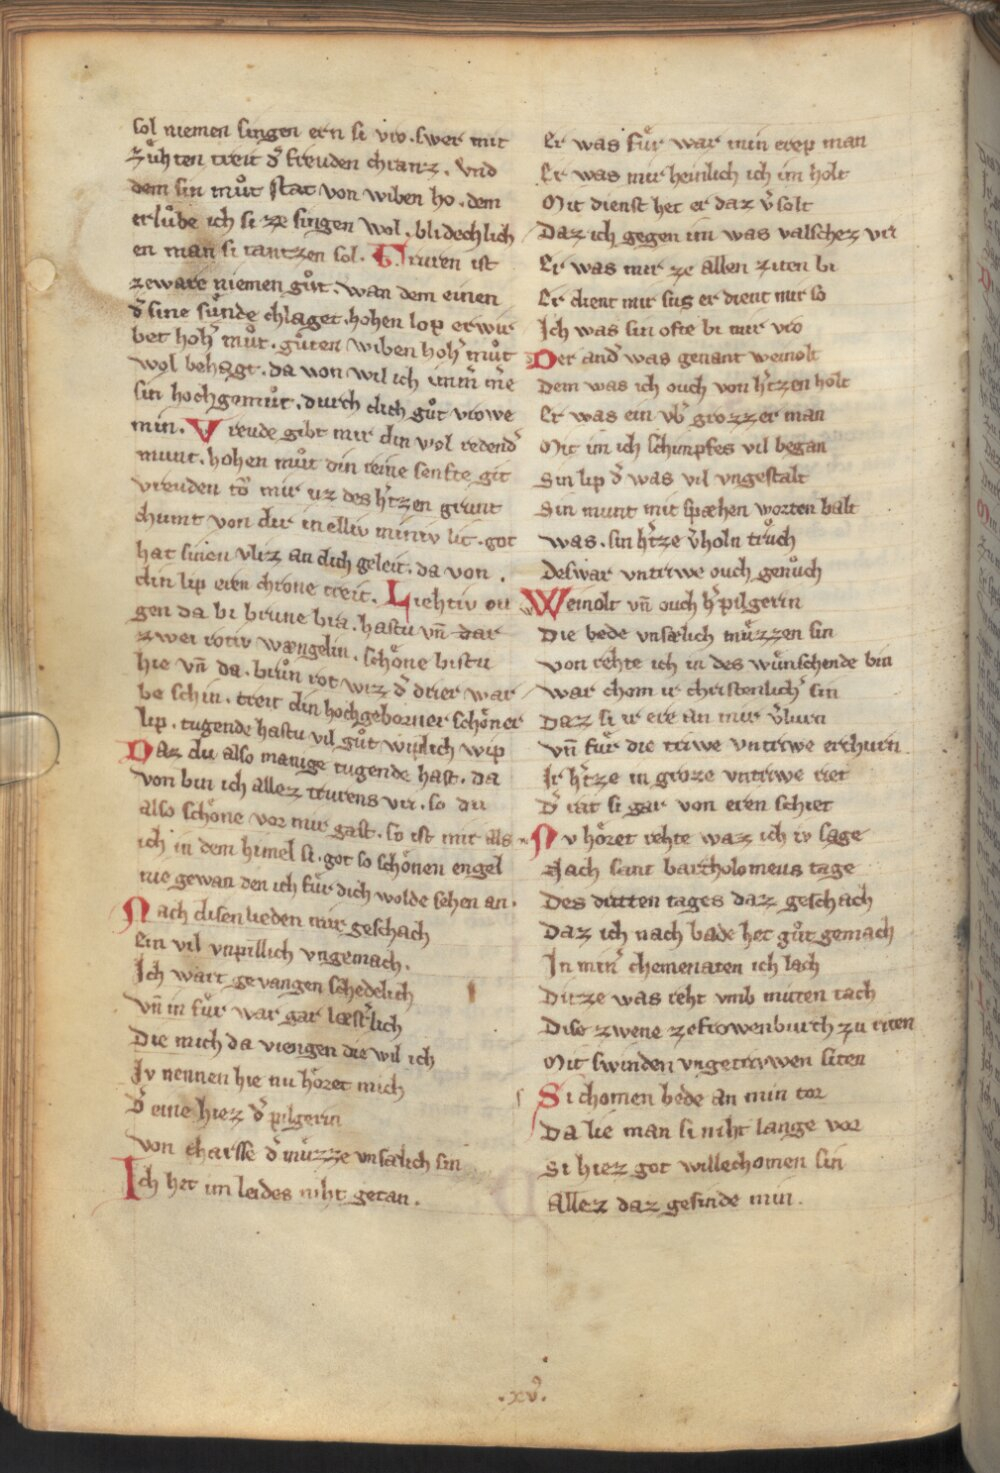 sol niemen singen ern si vro. swer mit
zuͤhten treit d͛ freuden chranz. Vnd
dem sin muͦt stat von wiben ho. dem
erlůbe ich si ze singen wol. blidechlich
en man si tantzen sol. Truren ist
zeware niemen gůt. wan dem einen
d͛ sine suͤnde chlaget. hohen lop erwir
bet hoh͛ můt. gůten wiben hoh͛ můt
wol behagt. da von wil ich imm͛ me
sin hochgemůt. durch dich gůt vrowe
min. Vreude gibt mir din wol redend͛
munt. hohen můt din reine senfte git
vreuden to͛ mir uz des h͛tzen grunt
chumt von dir in elliv miniv lit. got
hat sinen vliz an dich geleit. da von
din lip eren chrone treit. Liehtiv ou
gen da bi brune bra. hastu vn̄ dar
zwei rotiv wængelin. schoͤne bistu
hie vn̄ da. brůn rot wiz d͛ drier var
be schin. treit din hochgeborner schoͤner
lip. tugende hastu vil gůt wiplich wip
Daz du also manige tugende hast. da
von bin ich allez trurens vri. so du
also schoͤne vor mir gast. so ist mir als
ich in dem himel si. got so schoͤnen engel
nie gewan den ich fuͤr dich wolde sehen an.
Nach disen lieden mir geschach
Ein vil vnpillich vngemach.
Ich wart gevangen schedelich
vn̄ in fuͤr war gar læst͛lich
Die mich da viengen die wil ich
Iv nennen hie nu hoͤret mich
D͛ eine hiez d͛ pilgerin
von charsse d͛ muͤzze vnsælich sin
Ich het im leides niht getan.
Er was fuͤr war min erep man
Er was mir heinlich ich im holt
Mit dienst het er daz v͛solt
Daz ich gegen im was valschez vri
Er was mir ze allen ziten bi
Er dient mir sus er dient mir so
Ich was sin ofte bi mir vro
Der and͛ was genant weinolt
Dem was ich ouch von h͛tzen holt
Er was ein vb͛ grozzer man
Mit im ich schimpfes vil began
Sin lip d͛ was vil vngestalt
Sin munt mit spæhen worten balt
was. sin h͛tze v͛holn trůch
Deswar vntriwe ouch genůch
Weinolt vn̄ ouch h͛ pilgerin
Die bede vnsælich muͤzzen sin
von rehte ich in des wuͤnschende bin
war chom ir christenlich͛ sin
Daz si ir ere an mir v͛lurn
vn̄ fuͤr die triwe vntriwe erchurn
Ir h͛tze in groze vntriwe riet
D͛ rat si gar von eren schiet
Nv hoͤret rehte waz ich iv sage
Nach sant bartholomeus tage
Des dritten tages daz geschach
Daz ich nach bade het gůt gemach
In min͛ chemenaten ich lach
Ditze was reht vmb mitten tach
Dise zwene ze frowenburch zu riten
Mit swinden vngetriwen siten
Si chomen bede an min tor
Da lie man si niht lange vor
Si hiez got willechomen sin
Allez daz gesinde min.
.xv͛.